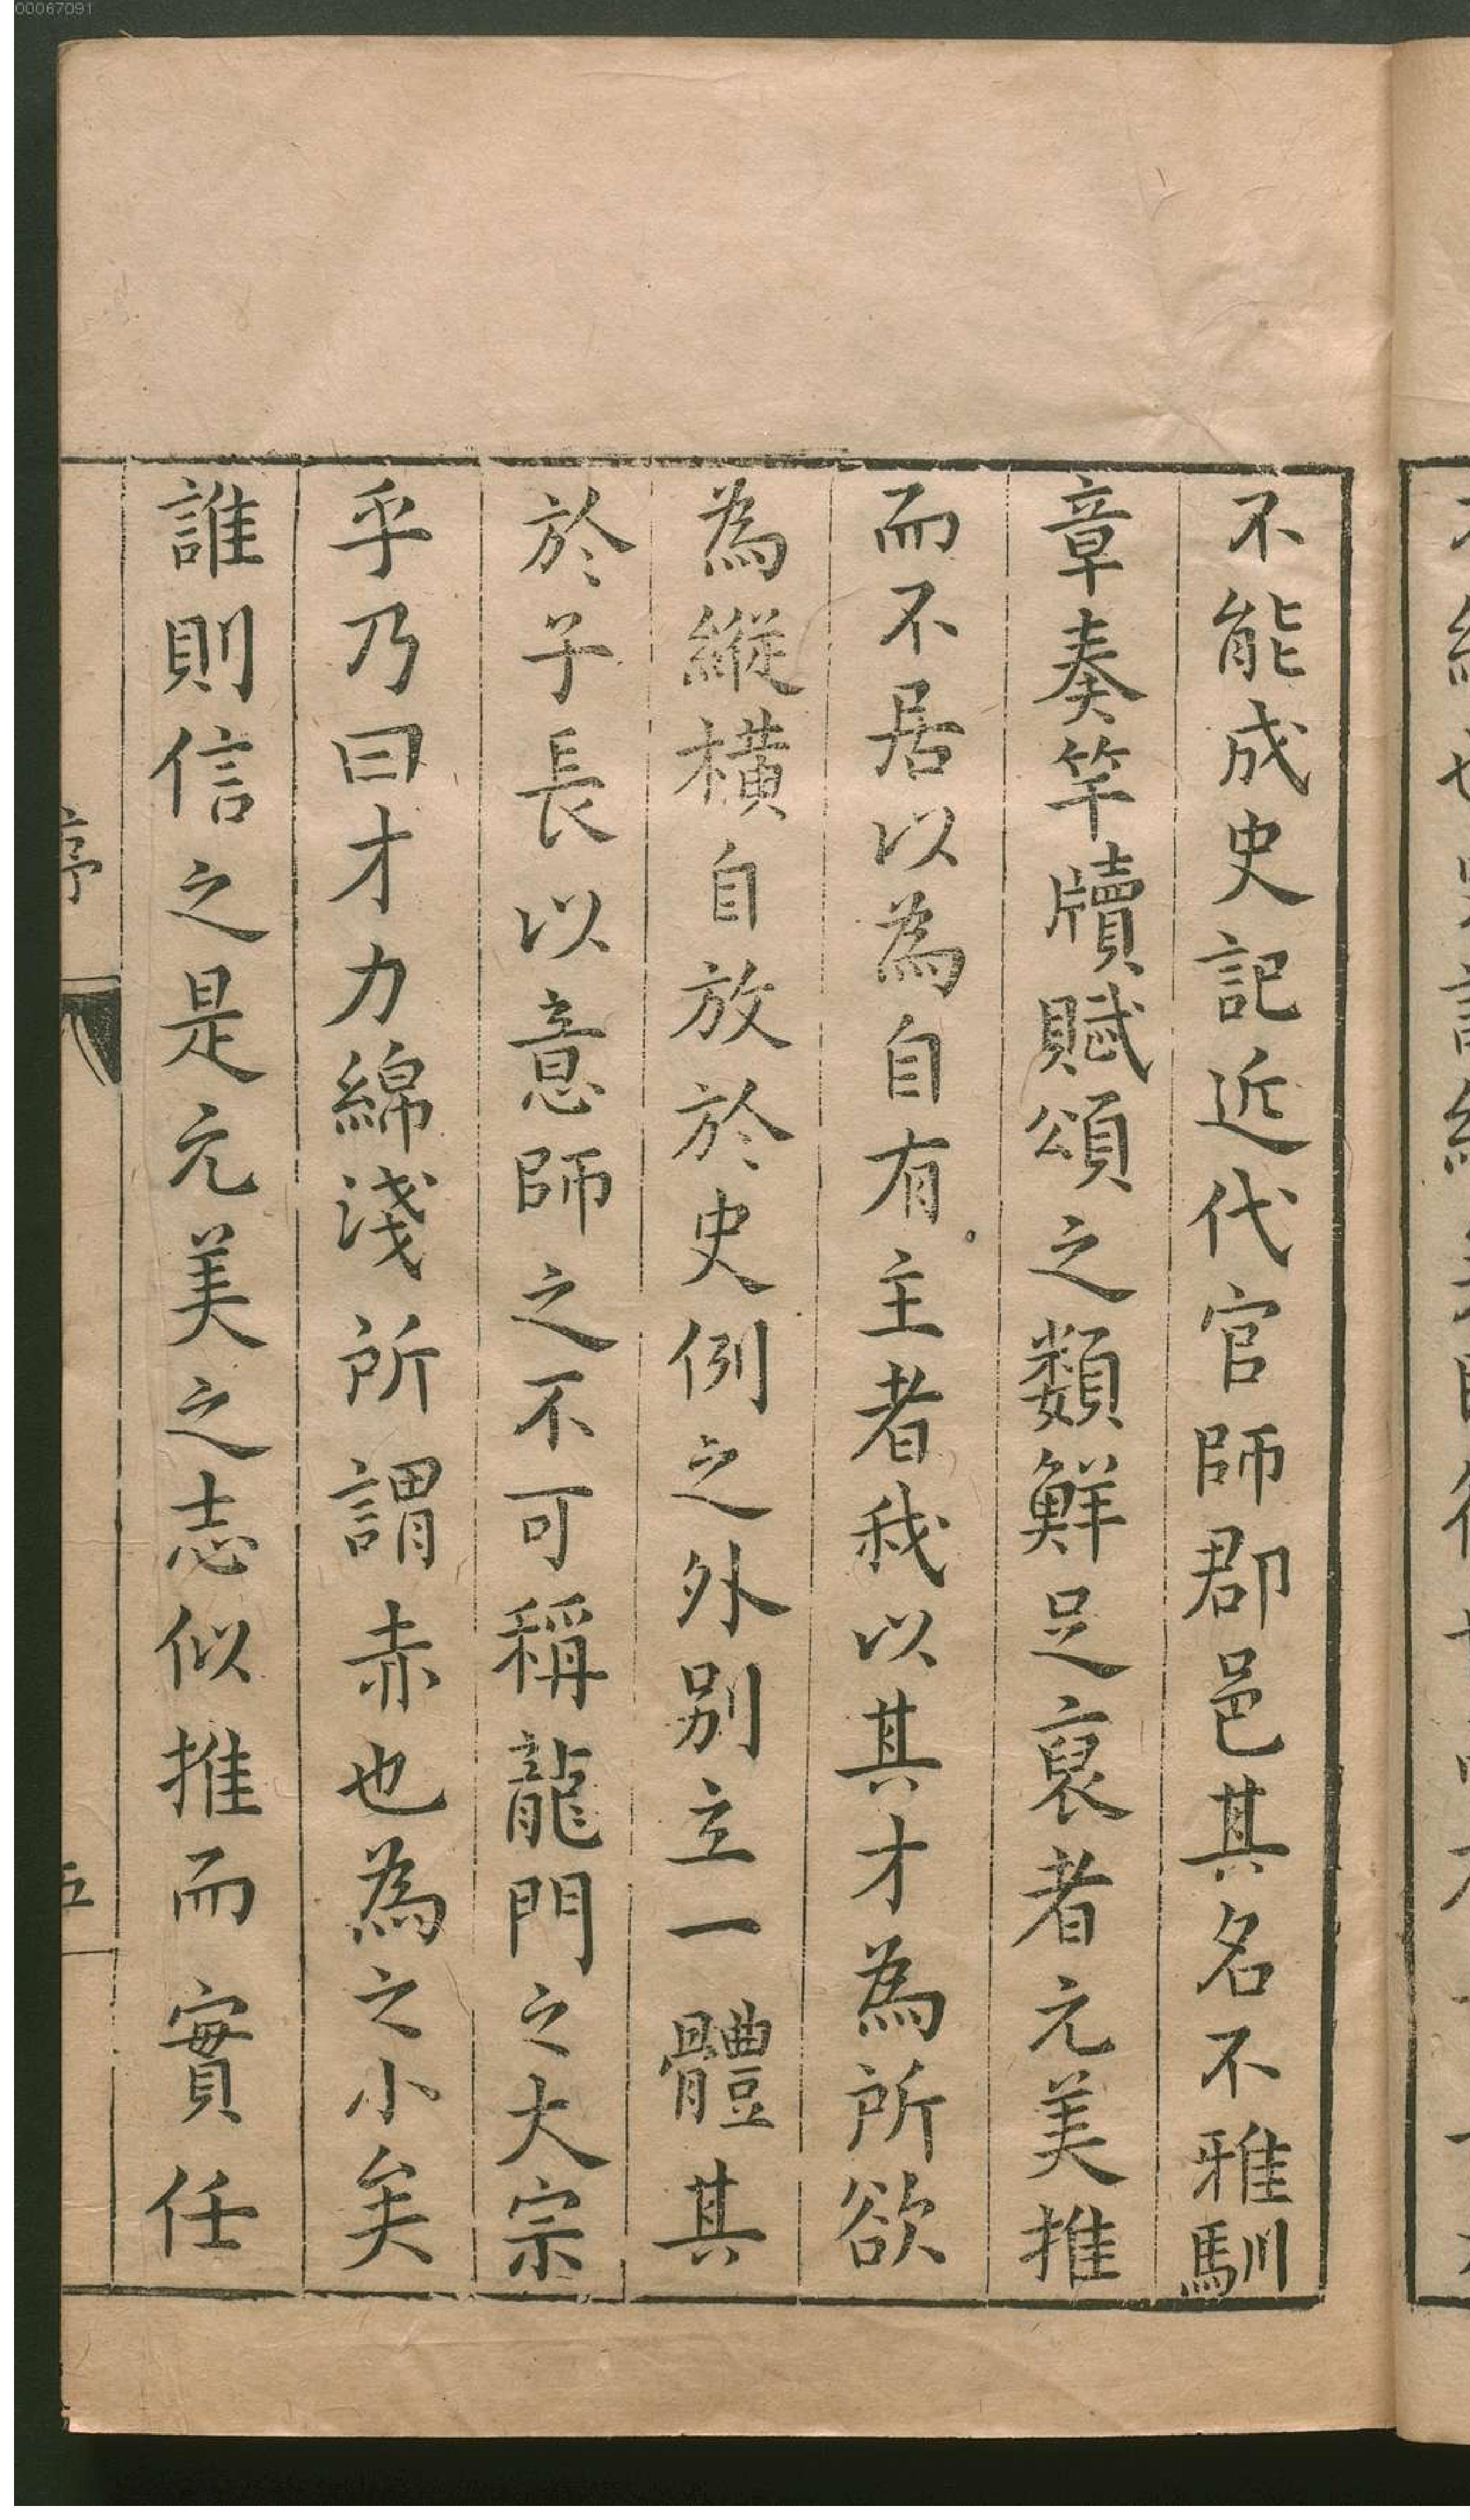 00067091
不能成史記近代官師郡邑其名不雅馴
章奏竿牘賦頌之類鮮足裒者元美推
而不居以為自有主者我以其才為所欲
為縱橫自放於史例之外別立一體其
於子長以意師之不可稱龍門之大宗
乎乃曰才力綿淺所謂赤也為之小矣
誰則信之是元美之志似推而實任
序
五